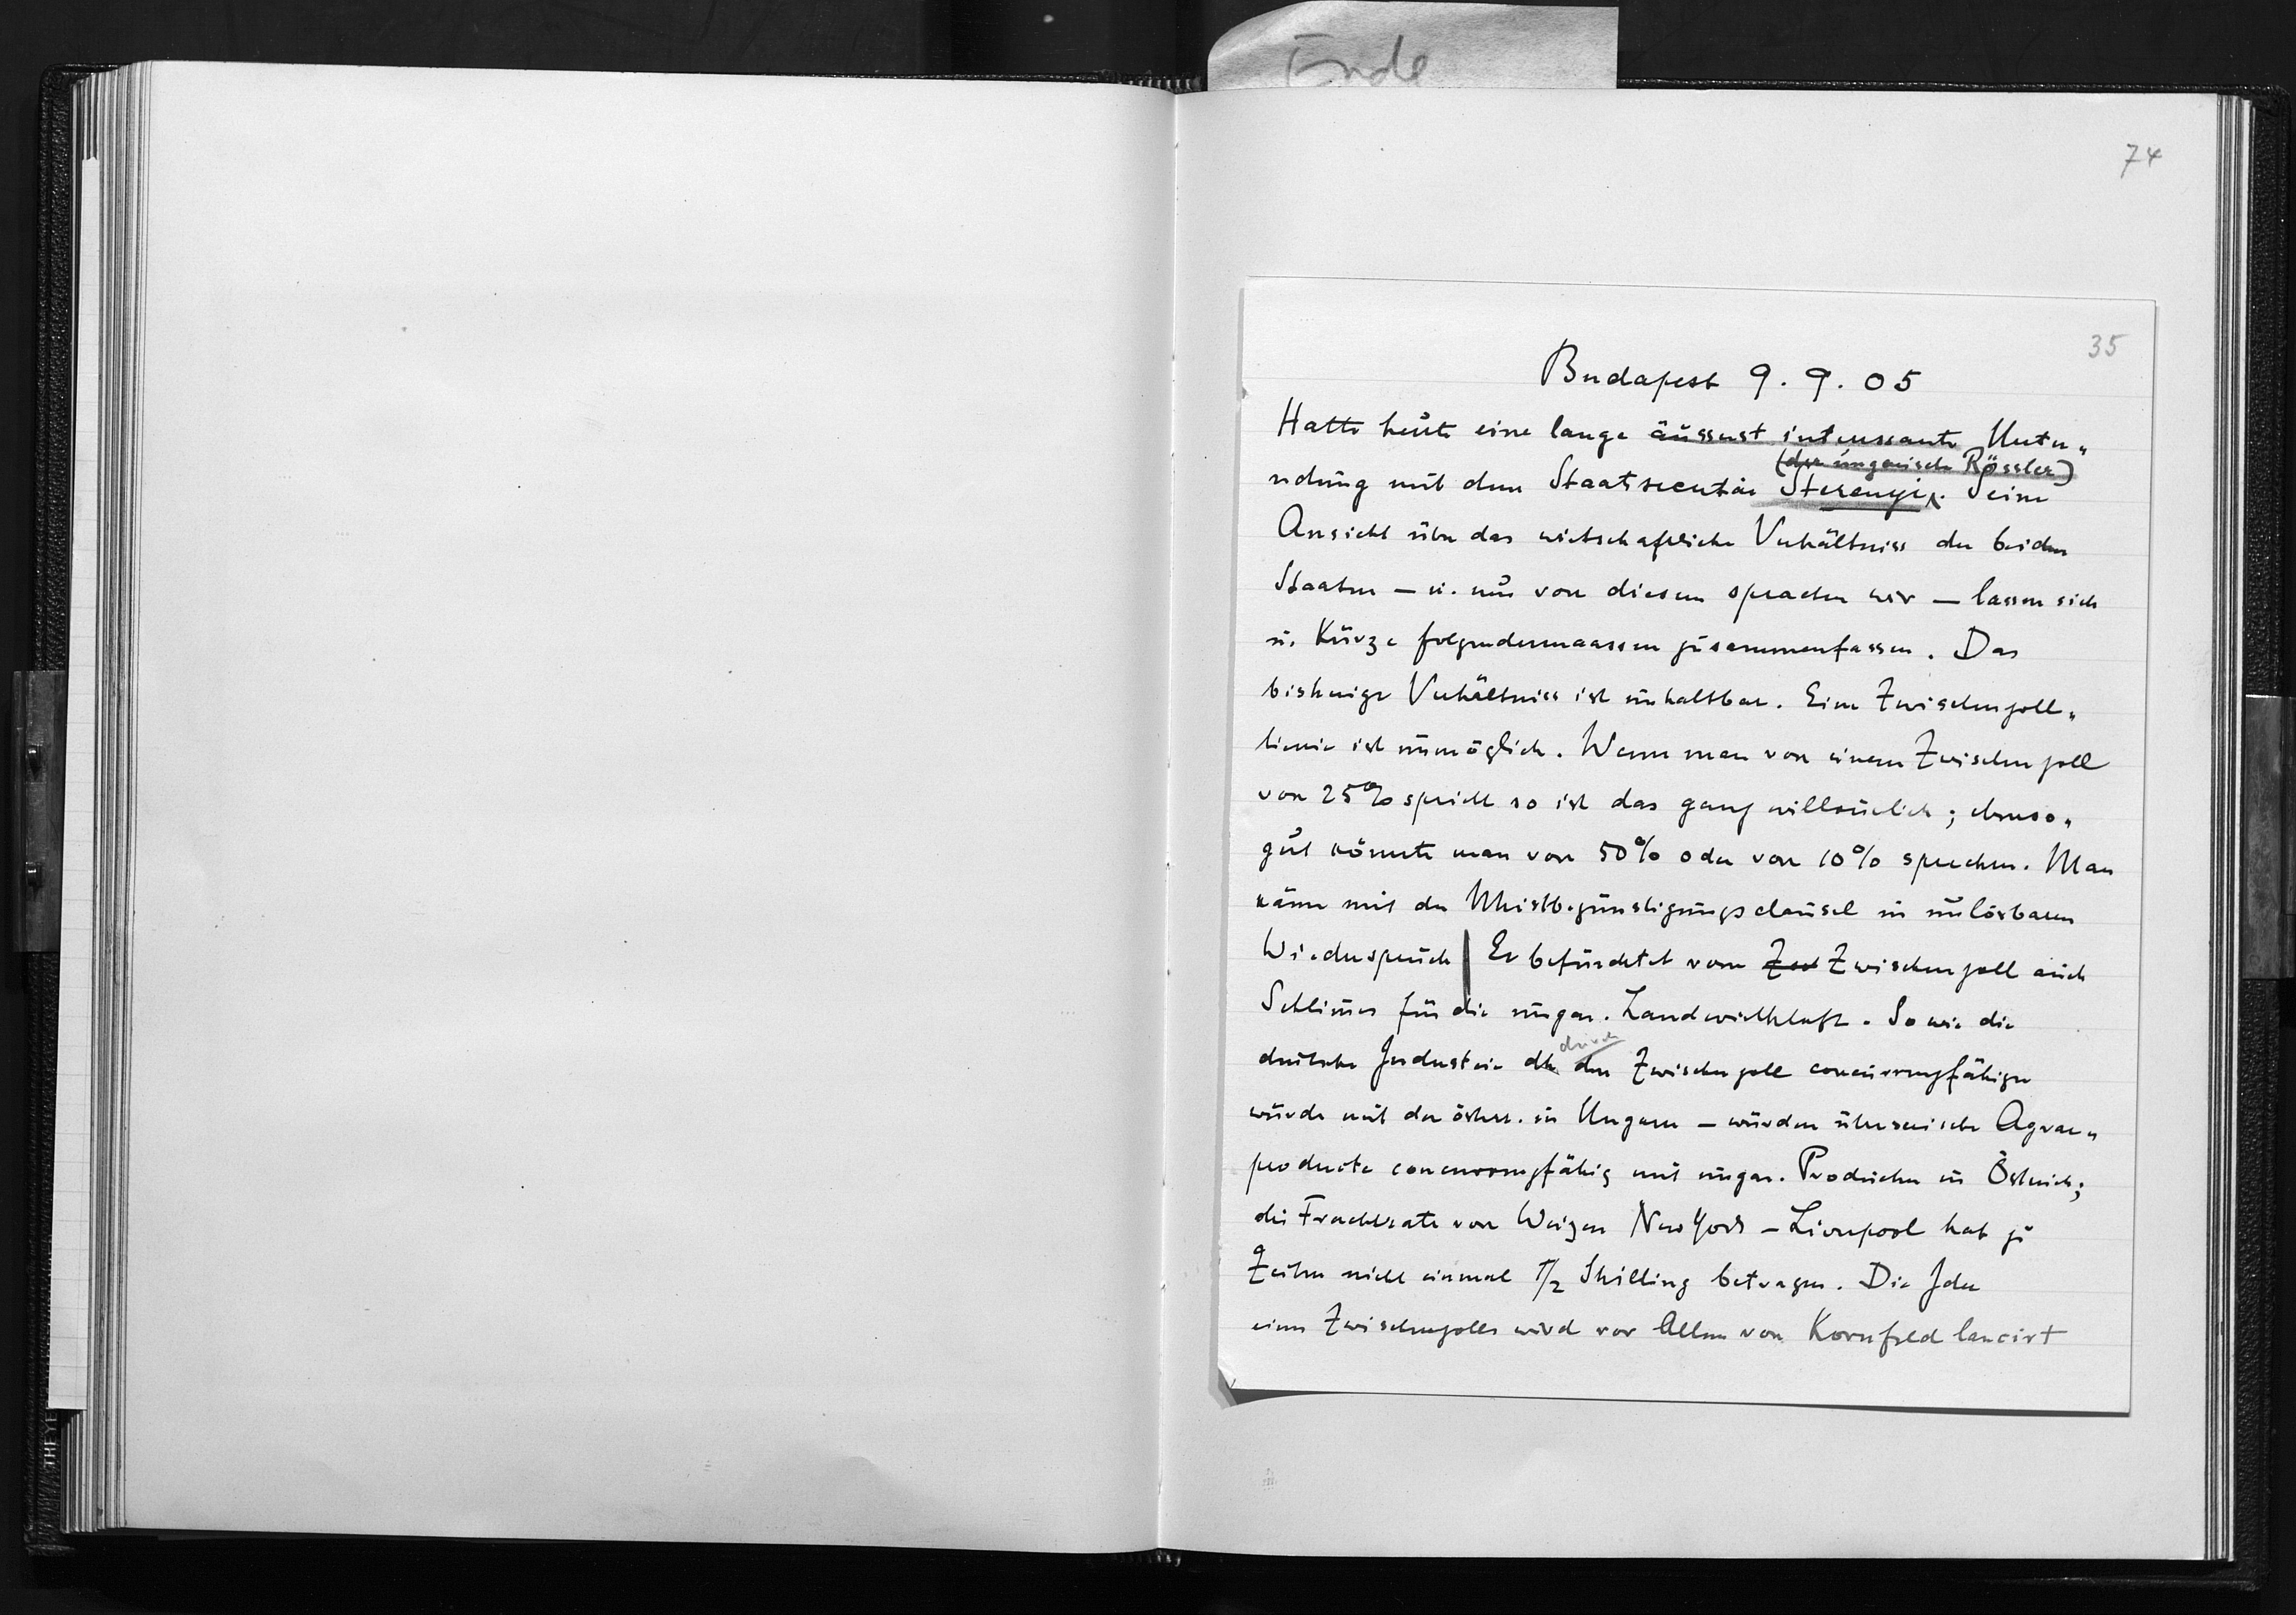 Ende
74
35
Budapest 9. 9. 05
Hatte heute eine lange äusserst interessante Unter„
(der ungarische Rössler)
redung mit dem Staatssecretär Sterenyi. Seine
Ansicht über das wirtschaftliche Verhältniss der beiden
Staaten – u. nur von diesem sprachen wir – lassen sich
in Kürze folgendermaassen zusammenfassen. Das
bisherige Verhältniss ist unhaltbar. Eine Zwischenzoll„
linie ist unmöglich. Wenn man von einem Zwischenzoll
von 25% spricht so ist das ganz willkürlich; ebenso„
gut könnte man von 50% oder von 10% sprechen. Man
käme mit der Meistbegünstigungsclausel in unlösbaren
Wiederspruch | Er befürchtet vom Zwischenzoll auch
Schlimmes für die ungar. Landwirthschaft. So wie die
durch
deutsche Industrie den Zwischenzoll concurrenzfähiger
würde mit der österr. in Ungarn – würden überseeische Agrar„
producte concurrenzfähig mit ungar. Producten in Östreich;
die Frachtrate von Weizen New York – Liverpool hat zu
Zeiten nicht einmal 1/2 Shilling betragen. Die Idee
eines Zwischenzolls wird vor Allem von Kornfeld lancirt